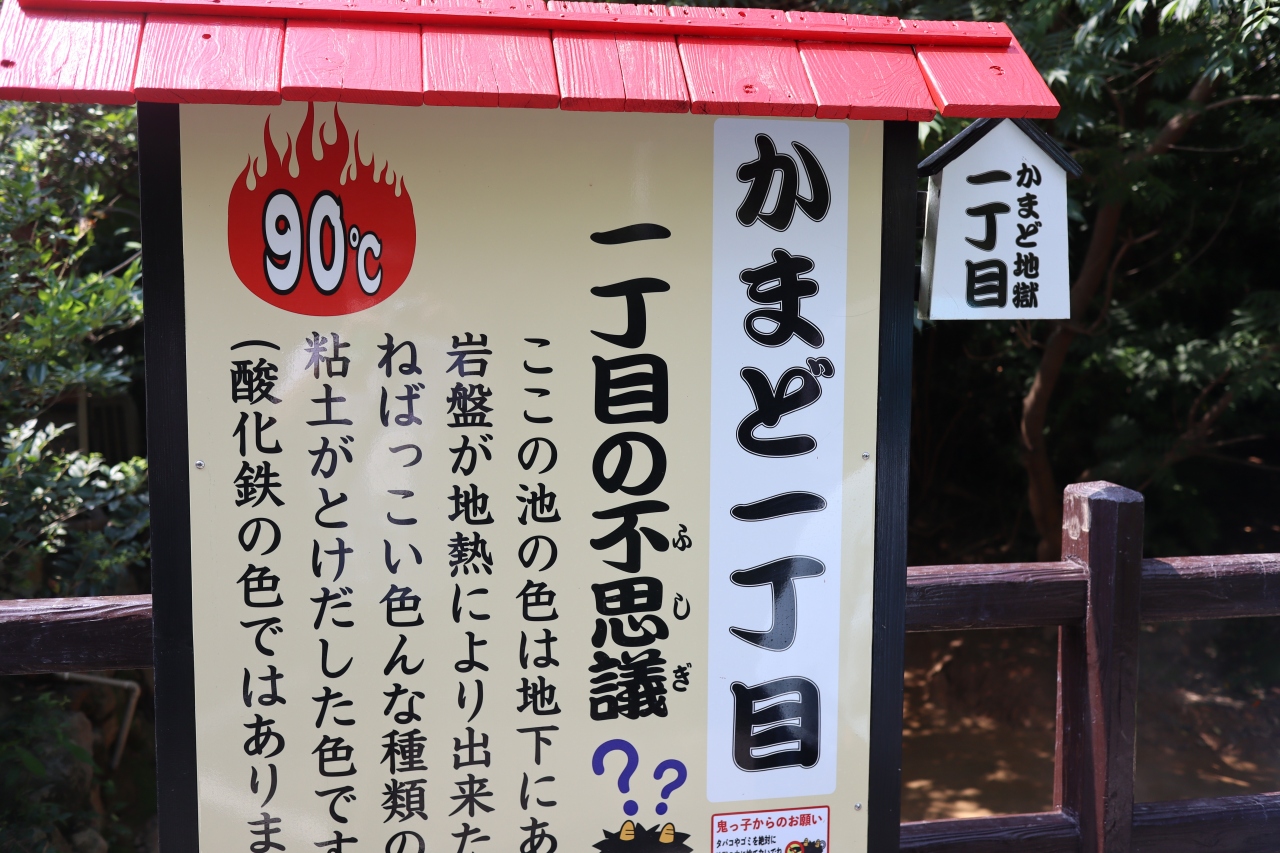 かまど地獄
一丁目
かまど一丁目
一丁目の不思議
ふしぎ
??
ここの池の色は地下にあ
岩盤が地熱により出来た
ねばっこい色んな種類の
粘土がとけだした色です
(酸化鉄の色ではありま
90℃
鬼っ子からのお願い
タバコやゴミを絶対に